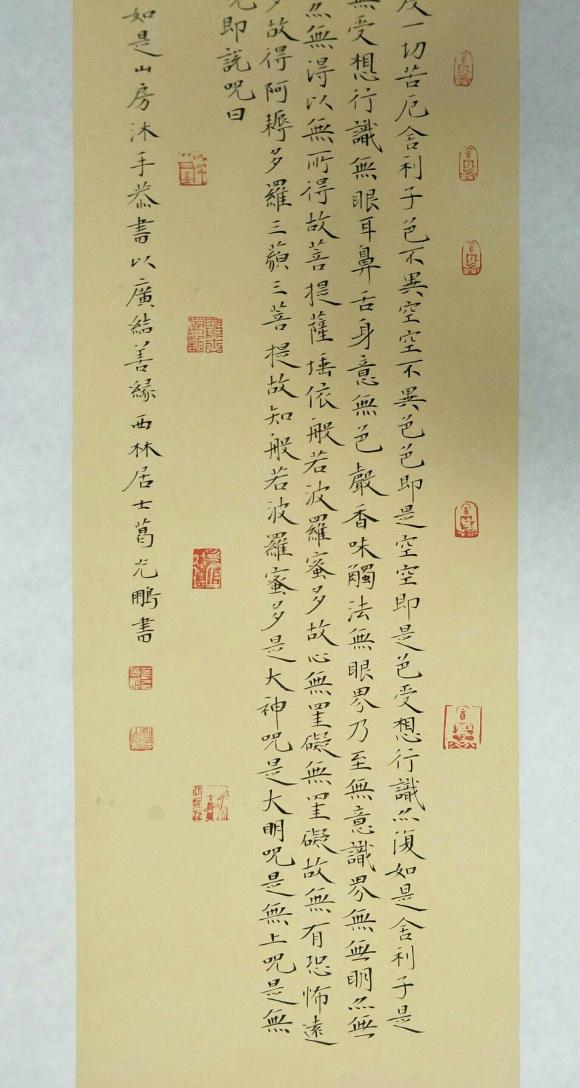 度一切苦厄舍利子色不異空空不異色色即是空空即是色受想行識亦復如是舍利子是
無受想行識無眼耳鼻舌身意無色聲香味觸法無眼界乃至無意識界無無明亦無
亦無得以無所得故菩提薩埵依般若波羅蜜多故心無罣礙無罣礙故無有恐怖遠
多故得阿耨多羅三藐三菩提故知般若波羅蜜多是大神咒是大明咒是無上咒是無
咒即説咒曰
如是山房沐手恭書以廣結善緣西林居士葛允鵬書